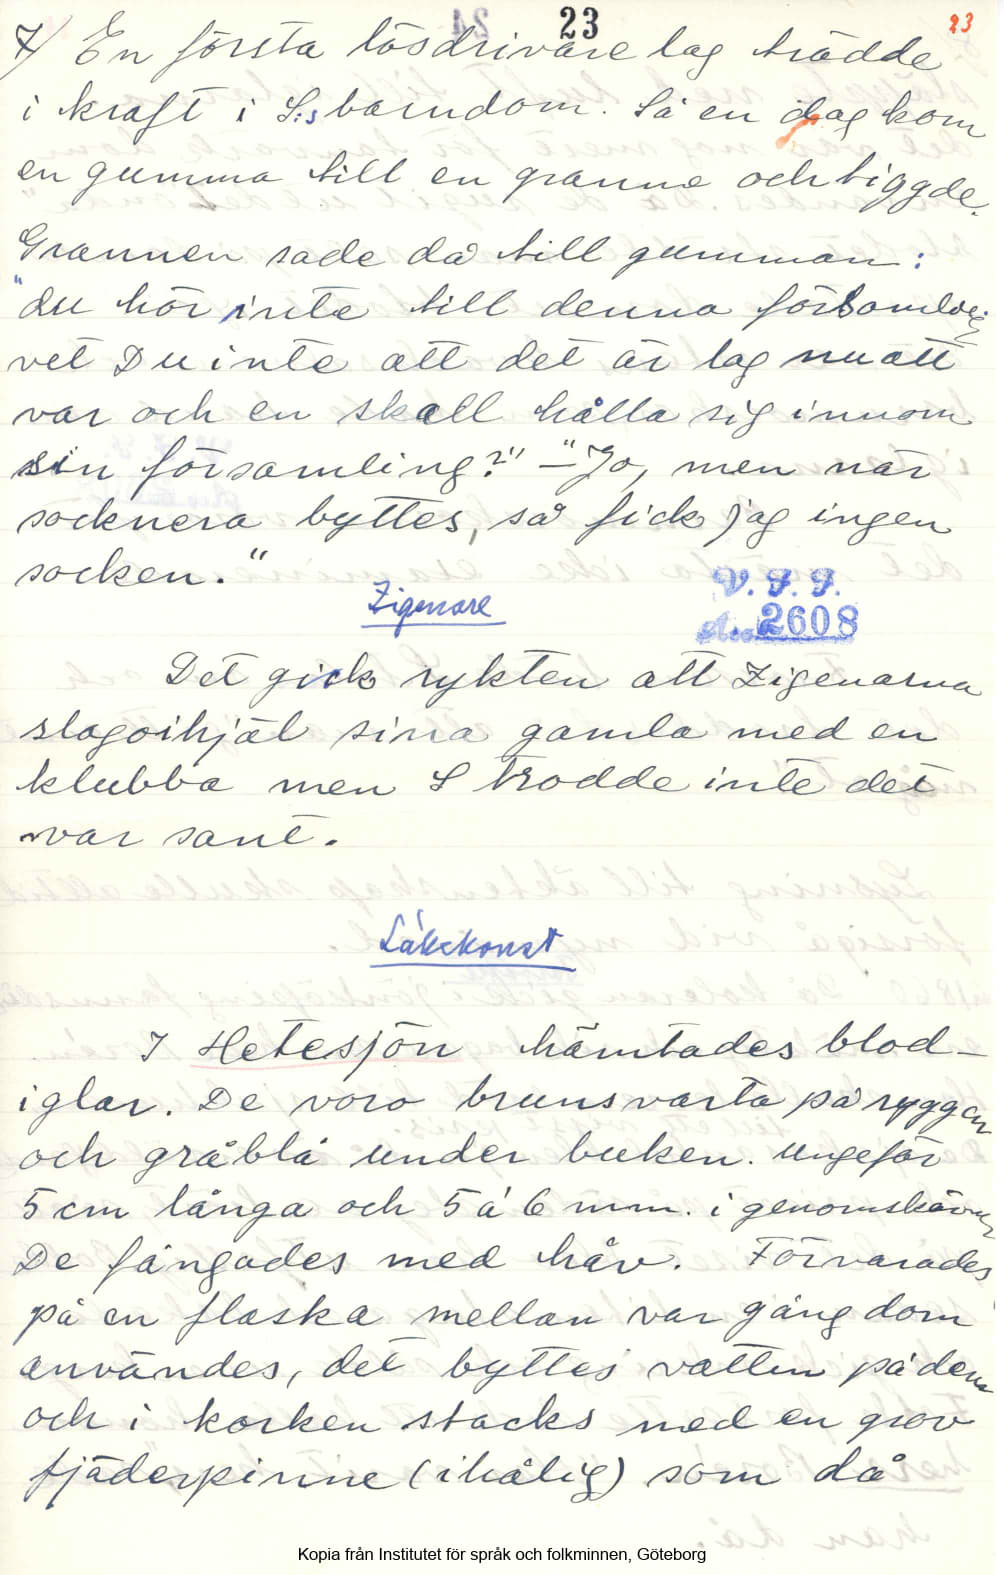 23
23
7) En första lösdrivare lag trädde
i kraft i S:s barndom. Så en dag kom
en gumma till en granne och tiggde.
Grannen sade då till gumman:
"du hör inte till denna församling
vet Du inte att det är lag nu att
var och en skall hålla sig innom
sin församling?" – "Jo, men när
socknera byttes, så fick jag ingen
socken."
Zigenare
V. F. F.
2608
Det gick rykten att Zigenarna
slogoihjäl sina gamla med en
klubba men S trodde inte det
var sant.
Läkekonst
I Hetesjön hämtades blod-
iglar. De voro brunsvarta på ryggen
och gråblå under buken. Ungefär
5 cm långa och 5 á 6 mm. i genomskärn
De fångades med håv. Förvarades
på en flaska mellan var gång dom
användes, det byttes vatten på dem
och i korken stacks ned en grov
fjäderpinne (ihålig) som då
Kopia från Institutet för språk och folkminnen, Göteborg